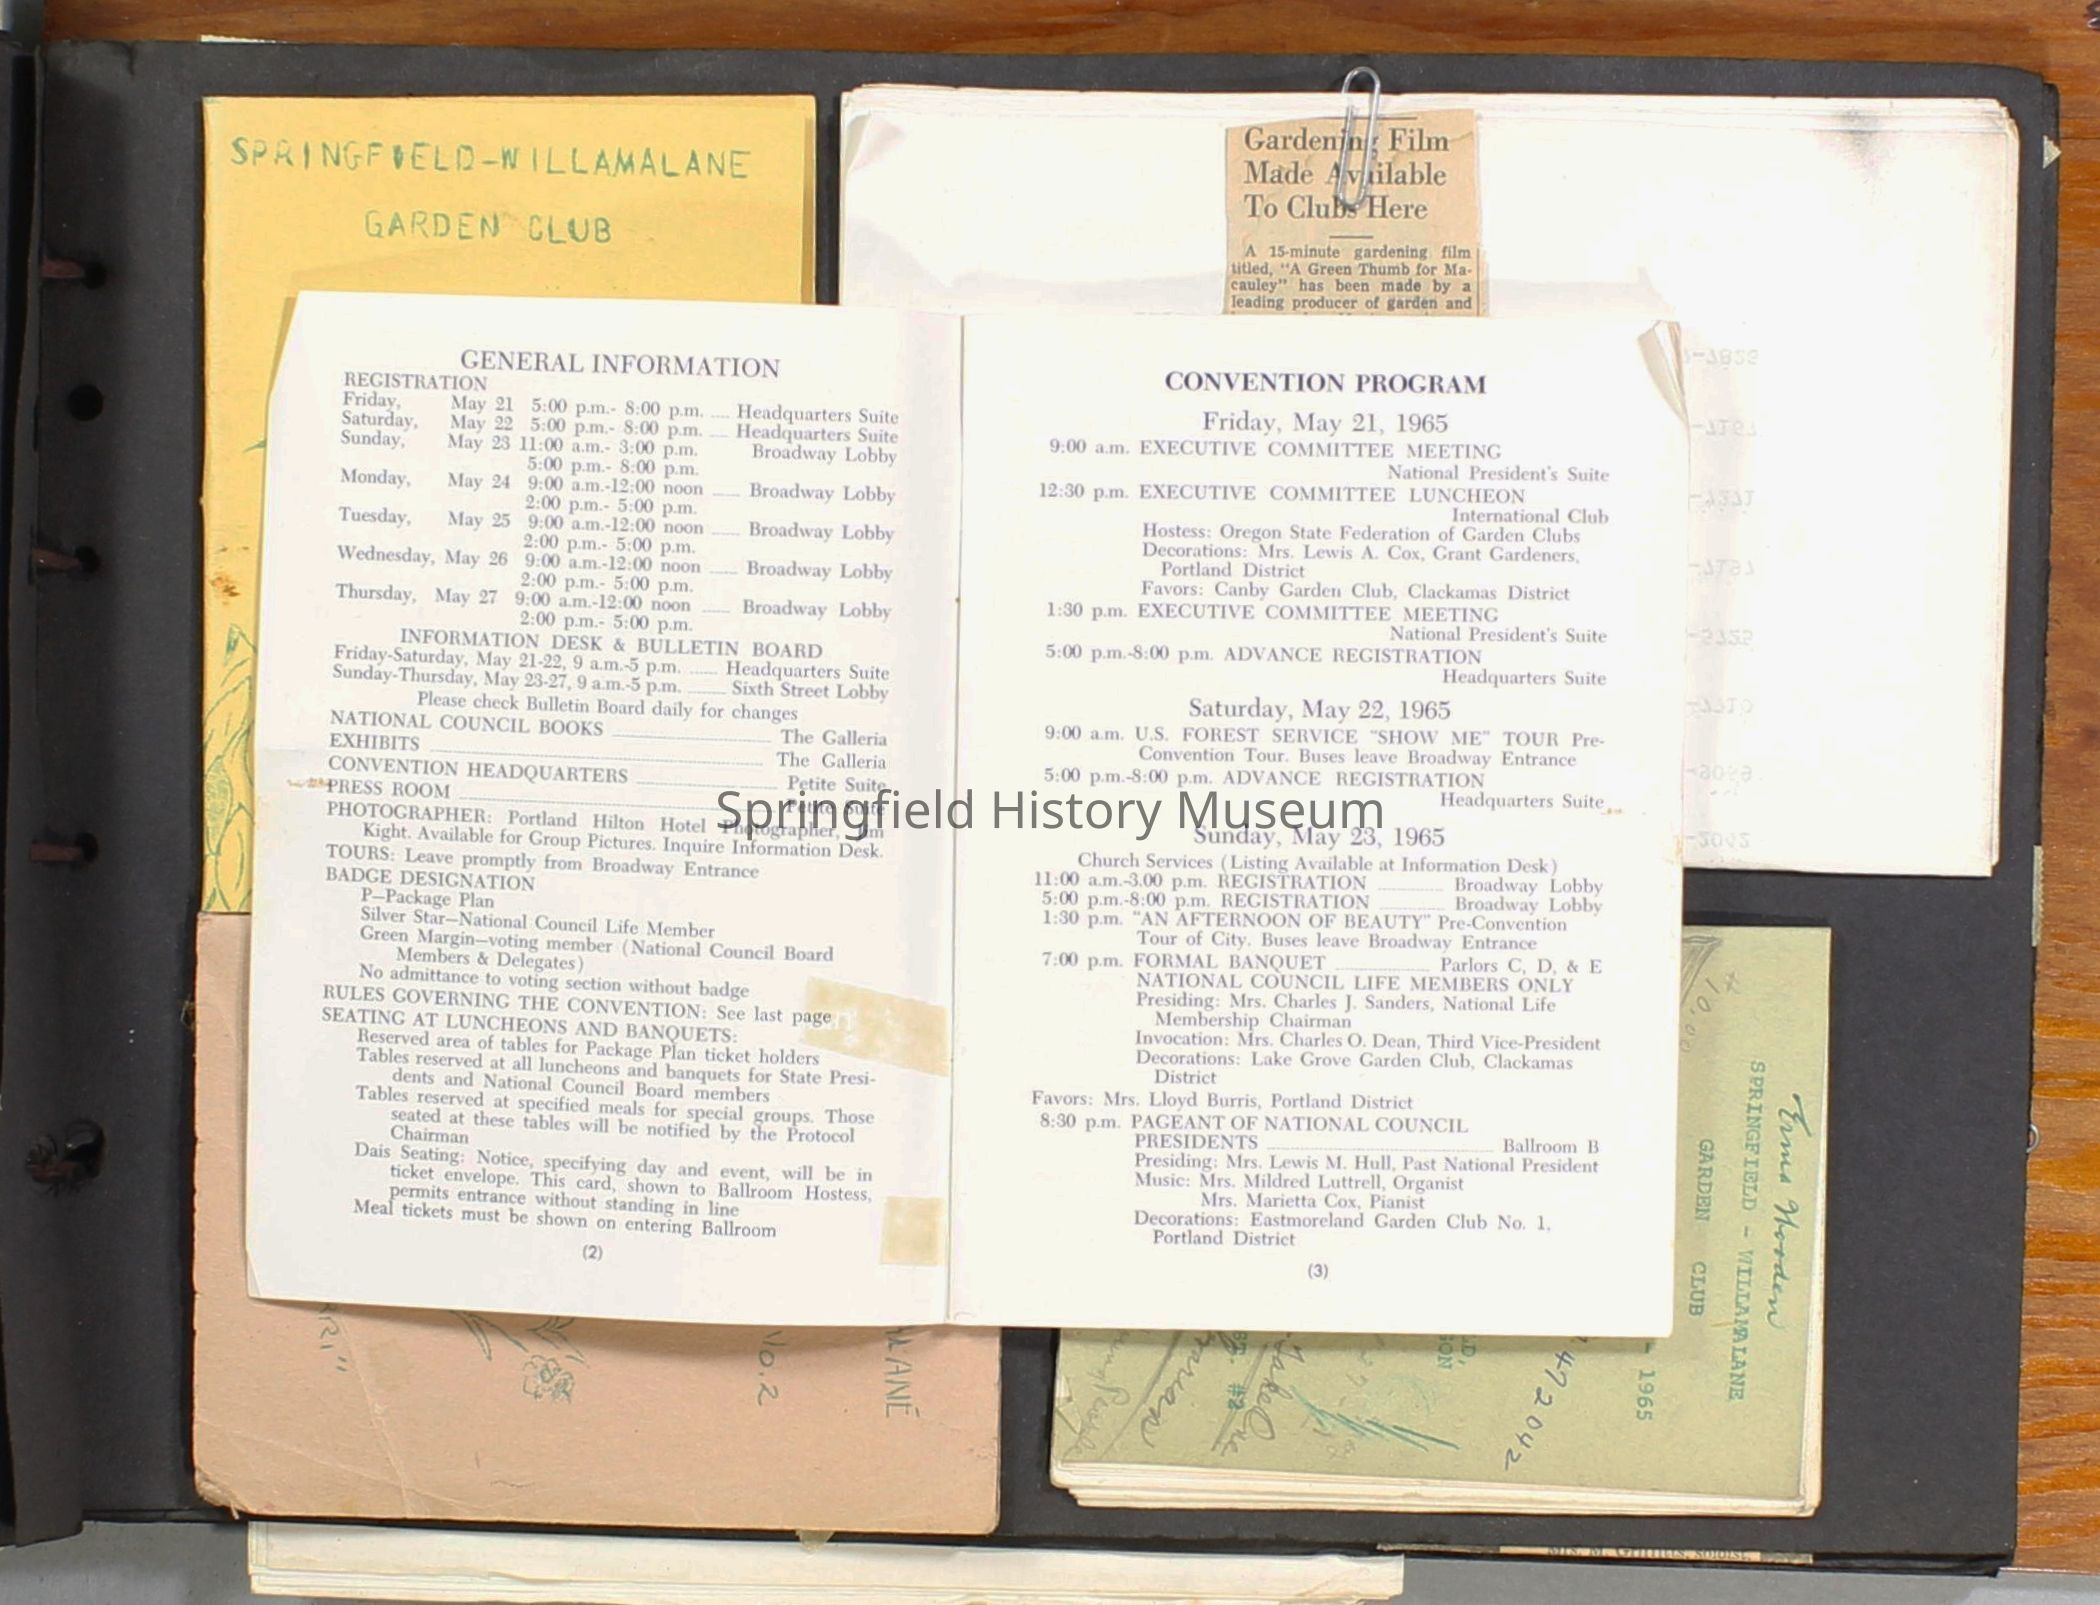 SPRINGFIELD-WILLAMALANE
GARDEN CLUB
Gardening Film
Made Available
To Clubs Here
A 15-minute gardening film
titled, "A Green Thumb for Ma-
cauley" has been made by a
leading producer of garden and
GENERAL INFORMATION
REGISTRATION
Friday, May 21 5:00 p.m.- 8:00 p.m. .... Headquarters Suite
Saturday, May 22 5:00 p.m.- 8:00 p.m. .... Headquarters Suite
Sunday, May 23 11:00 a.m.- 3:00 p.m. Broadway Lobby
5:00 p.m.- 8:00 p.m.
Monday, May 24 9:00 a.m.-12:00 noon ...... Broadway Lobby
2:00 p.m.- 5:00 p.m.
Tuesday, May 25 9:00 a.m.-12:00 noon ...... Broadway Lobby
2:00 p.m.- 5:00 p.m.
Wednesday, May 26 9:00 a.m.-12:00 noon ...... Broadway Lobby
2:00 p.m.- 5:00 p.m.
Thursday, May 27 9:00 a.m.-12:00 noon ...... Broadway Lobby
2:00 p.m.- 5:00 p.m.
INFORMATION DESK & BULLETIN BOARD
Friday-Saturday, May 21-22, 9 a.m.-5 p.m. ...... Headquarters Suite
Sunday-Thursday, May 23-27, 9 a.m.-5 p.m. ........ Sixth Street Lobby
Please check Bulletin Board daily for changes
NATIONAL COUNCIL BOOKS ................ The Galleria
EXHIBITS ................ The Galleria
CONVENTION HEADQUARTERS ................ Petite Suite
PRESS ROOM ................ Petite Suite
PHOTOGRAPHER: Portland Hilton Hotel Photographer, Jim
Kight. Available for Group Pictures. Inquire Information Desk.
TOURS: Leave promptly from Broadway Entrance
BADGE DESIGNATION
P—Package Plan
Silver Star—National Council Life Member
Green Margin—voting member (National Council Board
Members & Delegates)
No admittance to voting section without badge
RULES GOVERNING THE CONVENTION: See last page
SEATING AT LUNCHEONS AND BANQUETS:
Reserved area of tables for Package Plan ticket holders
Tables reserved at all luncheons and banquets for State Presi-
dents and National Council Board members
Tables reserved at specified meals for special groups. Those
seated at these tables will be notified by the Protocol
Chairman
Dais Seating: Notice, specifying day and event, will be in
ticket envelope. This card, shown to Ballroom Hostess,
permits entrance without standing in line
Meal tickets must be shown on entering Ballroom
(2)
CONVENTION PROGRAM
Friday, May 21, 1965
9:00 a.m. EXECUTIVE COMMITTEE MEETING
National President's Suite
12:30 p.m. EXECUTIVE COMMITTEE LUNCHEON
International Club
Hostess: Oregon State Federation of Garden Clubs
Decorations: Mrs. Lewis A. Cox, Grant Gardeners,
Portland District
Favors: Canby Garden Club, Clackamas District
1:30 p.m. EXECUTIVE COMMITTEE MEETING
National President's Suite
5:00 p.m.-8:00 p.m. ADVANCE REGISTRATION
Headquarters Suite
Saturday, May 22, 1965
9:00 a.m. U.S. FOREST SERVICE "SHOW ME" TOUR Pre-
Convention Tour. Buses leave Broadway Entrance
5:00 p.m.-8:00 p.m. ADVANCE REGISTRATION
Headquarters Suite
Sunday, May 23, 1965
Church Services (Listing Available at Information Desk)
11:00 a.m.-3.00 p.m. REGISTRATION ............ Broadway Lobby
5:00 p.m.-8:00 p.m. REGISTRATION ............ Broadway Lobby
1:30 p.m. "AN AFTERNOON OF BEAUTY" Pre-Convention
Tour of City. Buses leave Broadway Entrance
7:00 p.m. FORMAL BANQUET ................ Parlors C, D, & E
NATIONAL COUNCIL LIFE MEMBERS ONLY
Presiding: Mrs. Charles J. Sanders, National Life
Membership Chairman
Invocation: Mrs. Charles O. Dean, Third Vice-President
Decorations: Lake Grove Garden Club, Clackamas
District
Favors: Mrs. Lloyd Burris, Portland District
8:30 p.m. PAGEANT OF NATIONAL COUNCIL
PRESIDENTS ................ Ballroom B
Presiding: Mrs. Lewis M. Hull, Past National President
Music: Mrs. Mildred Luttrell, Organist
Mrs. Marietta Cox, Pianist
Decorations: Eastmoreland Garden Club No. 1,
Portland District
(3)
Springfield History Museum
10.00
SPRINGFIELD - WILLAMALANE
GARDEN CLUB
- 1965
4722042
#2
No. 2
Mrs. M. Griffitts, soloist,